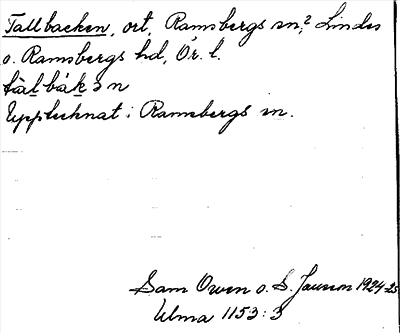 Tallbacken, ort, Ramsbergs sn,² Lindes
o. Ramsbergs hd, Ör. l.
tàlbákɜn
Upptecknat i Ramsbergs sn.
Sam Owen o. S. Jansson 1924-25
Ulma 1153:3